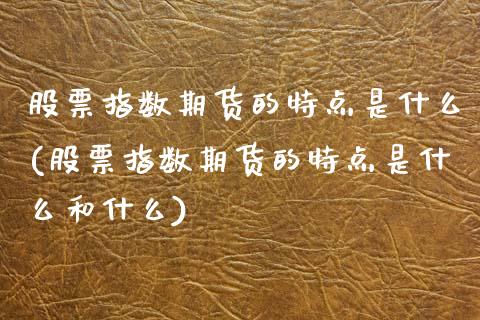 股票指数期货的特点是什么
(股票指数期货的特点是什
么和什么)